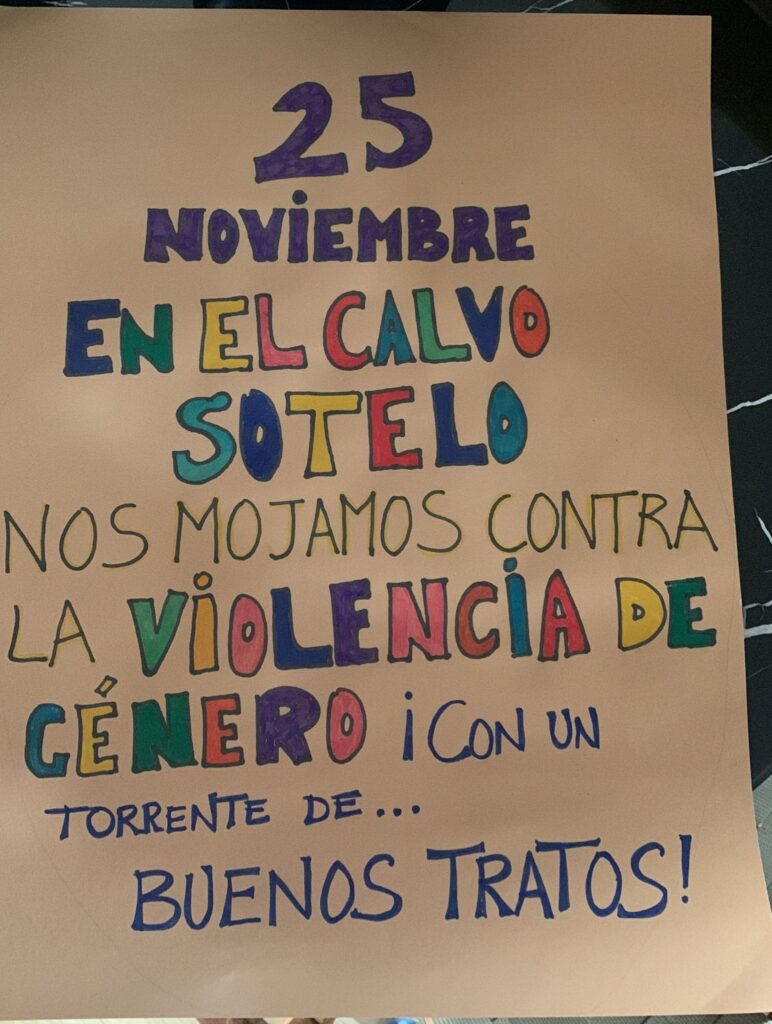 25
NOViEMBRE
EN EL CALVO
SOTELO
NOS MOJAMOS CONTRA
LA ViOLENCiA DE
GÉNERO ¡CON UN
TORRENTE DE...
BUENOS TRATOS!